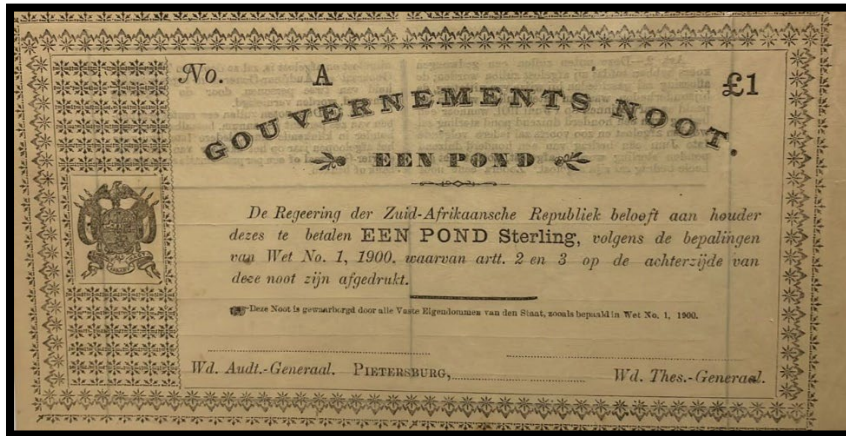 No. A £1
GOUVERNEMENTS NOOT.
EEN POND
De Regeering der Zuid-Afrikaansche Republiek belooft aan houder
dezes te betalen EEN POND Sterling, volgens de bepalingen
van Wet No. 1, 1900, waarvan artt. 2 en 3 op de achterzijde van
deze noot zijn afgedrukt.
Deze Noot is gewaarborgd door alle Vaste Eigendommen van den Staat, zooals bepaald in Wet No. 1, 1900.
Wd. Audt.-Generaal. PIETERSBURG, Wd. Thes.-Generaal.